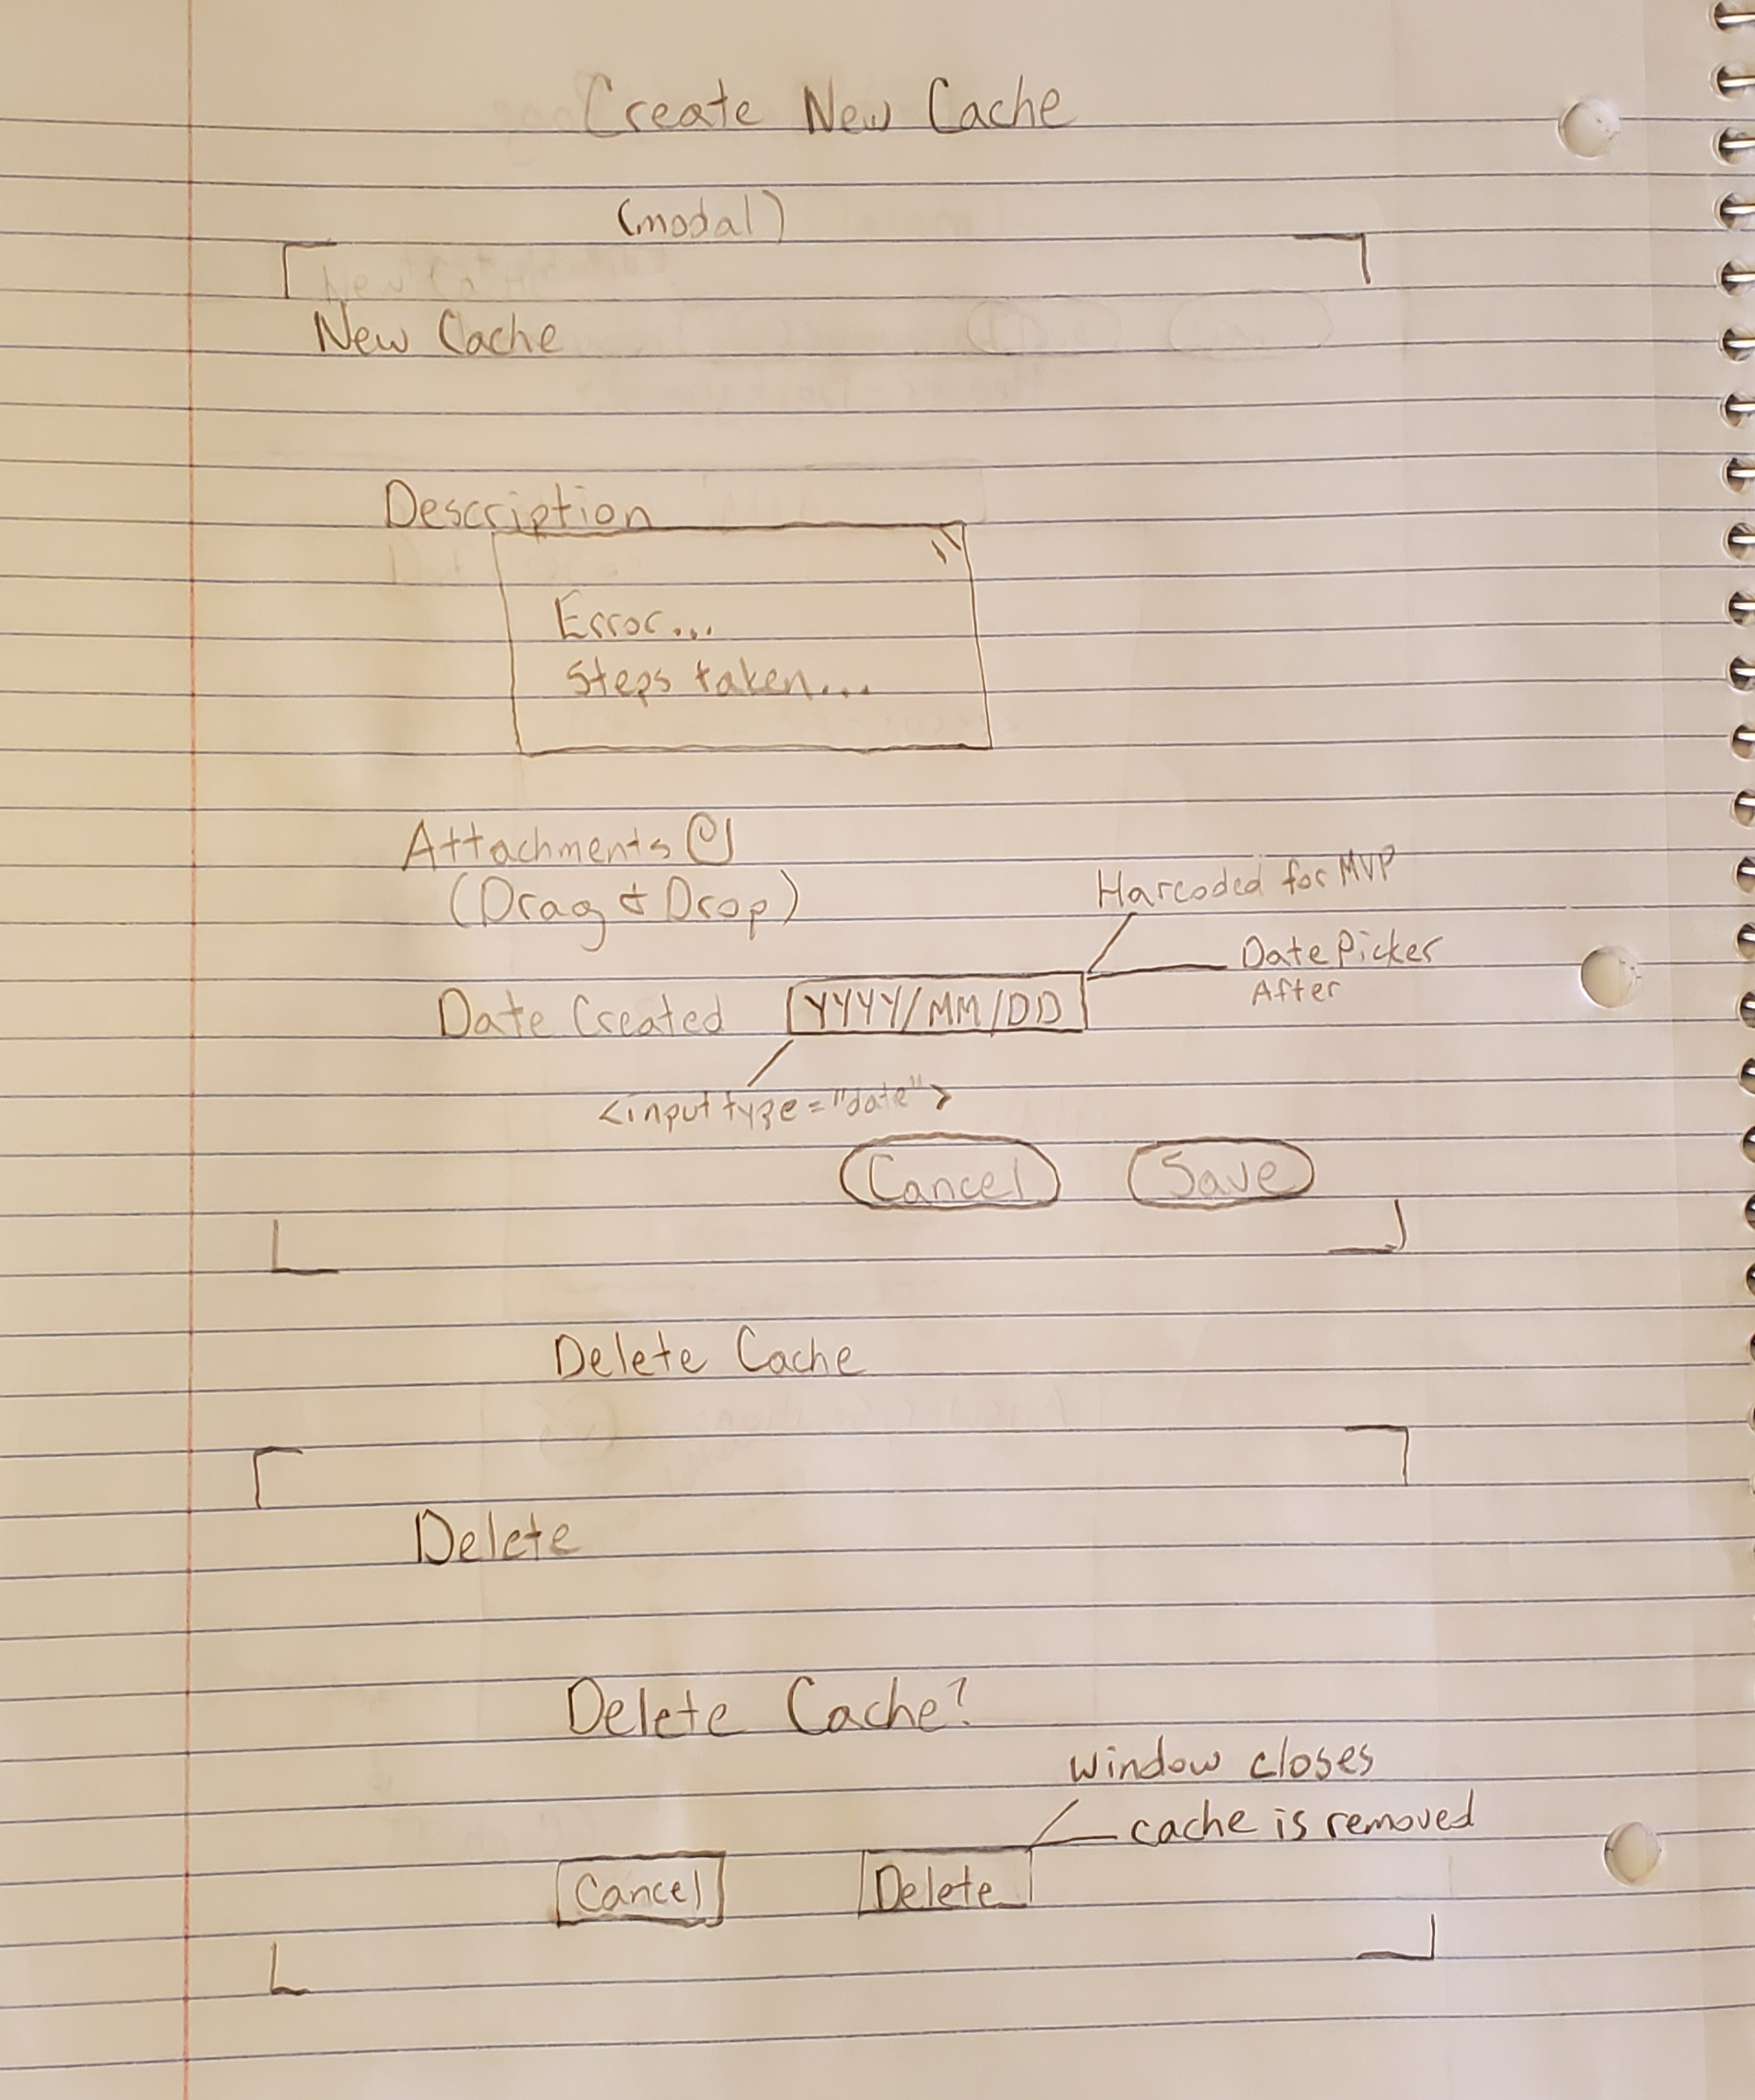 Create New Cache
(modal)
New Cache
Description
Error...
Steps taken...
Attachments
(Drag & Drop)
Harcoded for MVP
Date Picker
After
Date Created YYYY/MM/DD
<input type="date">
Cancel Save
Delete Cache
Delete
Delete Cache?
window closes
cache is removed
Cancel Delete